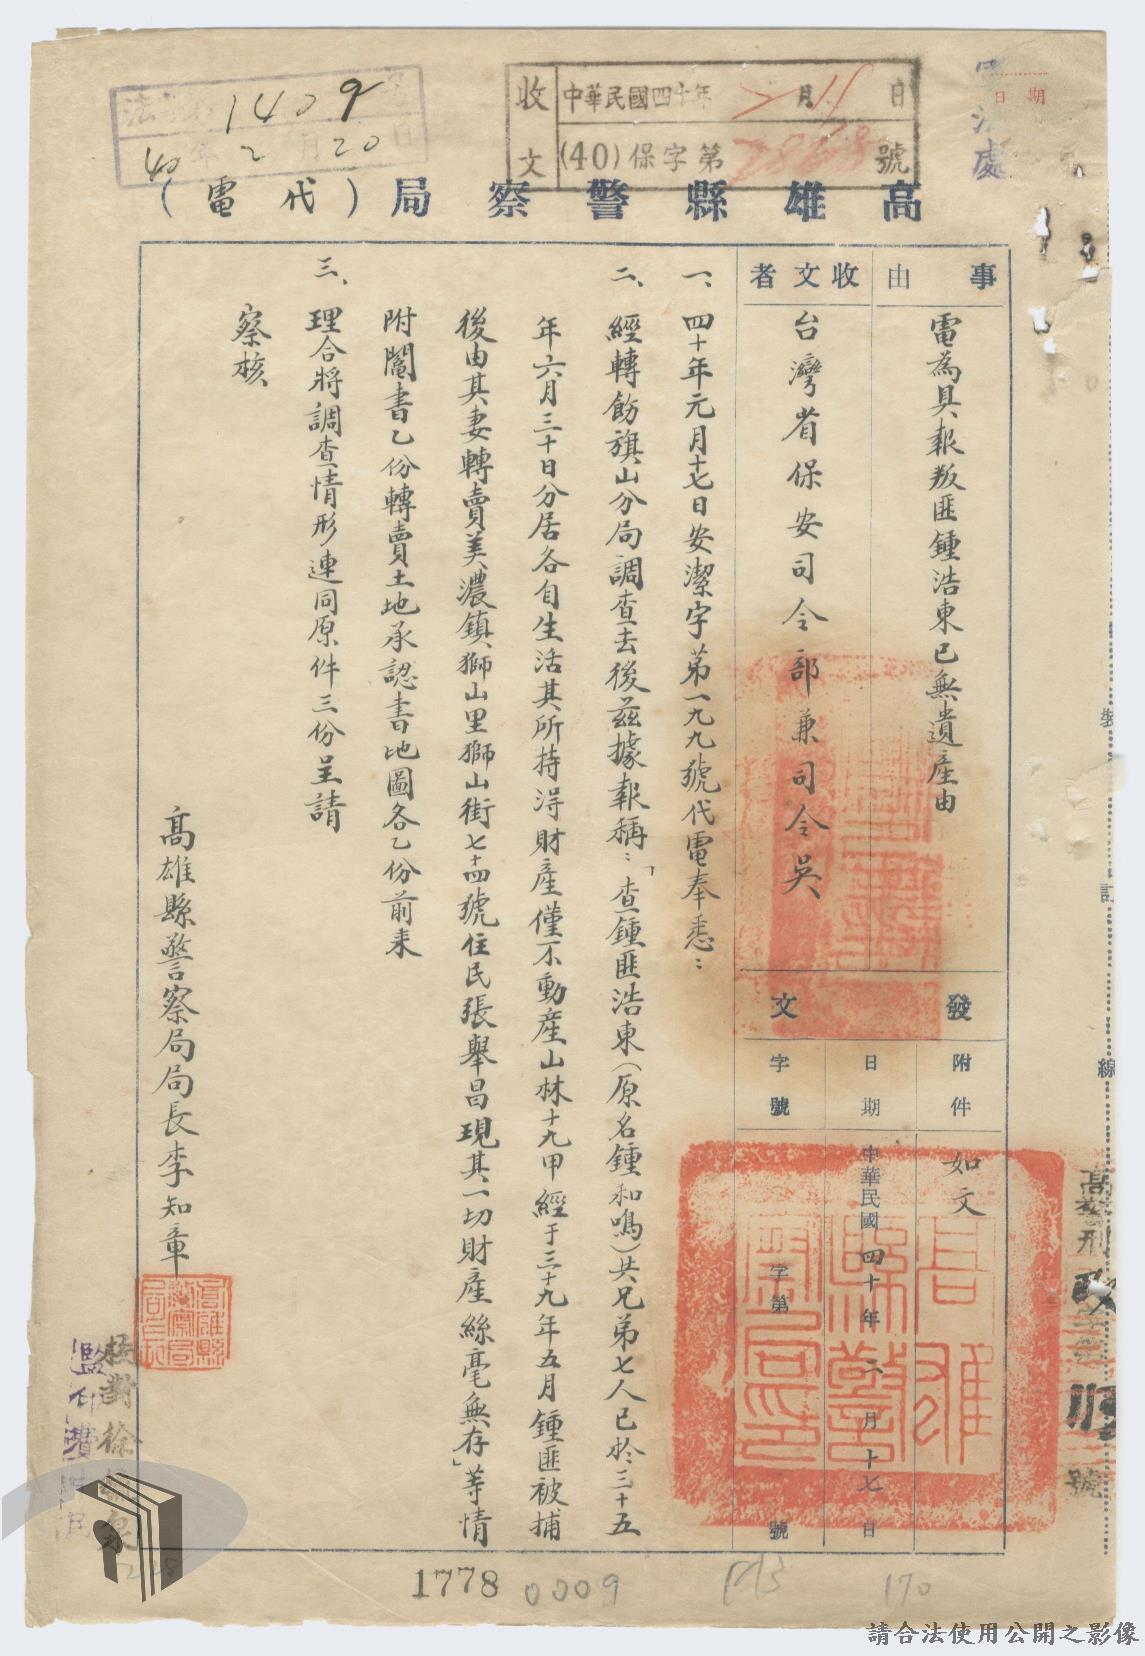 1409
40年2月20日
收文
中華民國四十年 月 日
(40)保字第 號
處
日期
高雄縣警察局(代電)
事由
電為具報叛匪鍾浩東已無遺產由
收文者
台灣省保安司令部兼司令吳
發文
附件
如文
日期
中華民國四十年二月十七日
字號
字第 號
一、四十年元月十七日安潔字第一九九號代電奉悉:
二、經轉飭旗山分局調查去後茲據報稱:「查鍾匪浩東(原名鍾和鳴)共兄弟七人已於三十五
年六月三十日分居各自生活其所持得財產僅不動產山林十九甲經于三十九年五月鍾匪被捕
後由其妻轉賣美濃鎮獅山里獅山街七十四號住民張舉昌現其一切財產絲毫無存」等情
附鬮書乙份轉賣土地承認書地圖各乙份前来
三、理合將調查情形連同原件三份呈請
察核
高雄縣警察局局長李知章
高雄縣警察局印
裝訂線
高警刑
號
校對徐
監印
1778
0009
170
請合法使用公開之影像